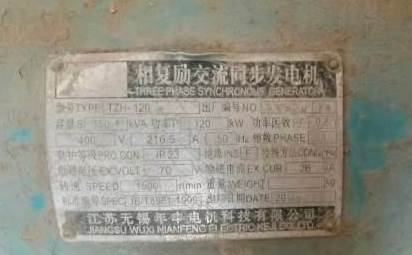 相复励交流同步发电机
THREE PHASE SYNCHRONOUS GENERATOR
型号TYPE TZH-120 出厂编号NO
容量S 150 kVA 功率P 120 kW 功率因数
400 V 216.5 A 50 Hz 相数PHASE
防护等级PRO.CON IP23 绝缘INS.E 接线方法CON
励磁电压EX.VOLT 70 V 励磁电流EX.CUR A
转速 SPEED 1500 r/min 重量WEIGHT kg
标准编号SPEC JB/T8981-1999 出厂日期DATE 20
江苏无锡年丰电机科技有限公司
JIANGSU WUXI NIANFENG ELECTRIC KEJI CO.LTD